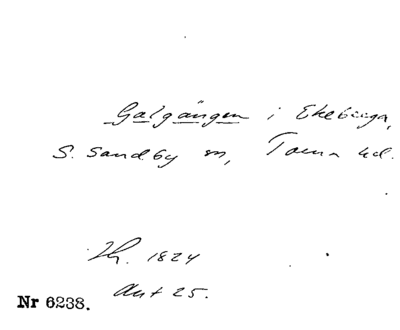 Galgängen i Ekebinga,
S. Sandby sn, Torna hd.
Th. 1824
Ant 25.
Nr 6238.